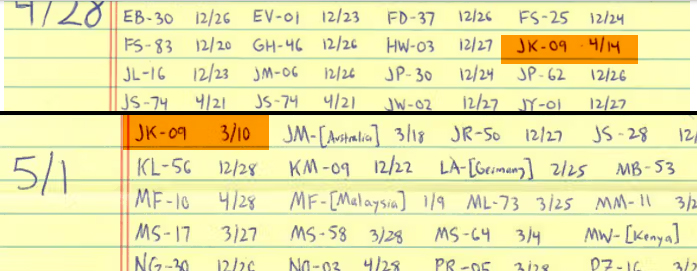 4/28
EB-30 12/26 EV-01 12/23 FD-37 12/26 FS-25 12/24
FS-83 12/20 GH-46 12/26 HW-03 12/27 JK-09 4/14
JL-16 12/23 JM-06 12/26 JP-30 12/24 JP-62 12/26
JS-74 4/21 JS-74 4/21 JW-02 12/27 JY-01 12/27
JK-09 3/10 JM-[Australia] 3/18 JR-50 12/27 JS-28 12/
5/1
KL-56 12/28 KM-09 12/22 LA-[Germany] 2/25 MB-53
MF-10 4/28 MF-[Malaysia] 1/9 ML-73 3/25 MM-11 3/2
MS-17 3/27 MS-58 3/28 MS-64 3/4 MW-[Kenya]
NG-30 12/26 NO-03 4/28 PR-05 3/28